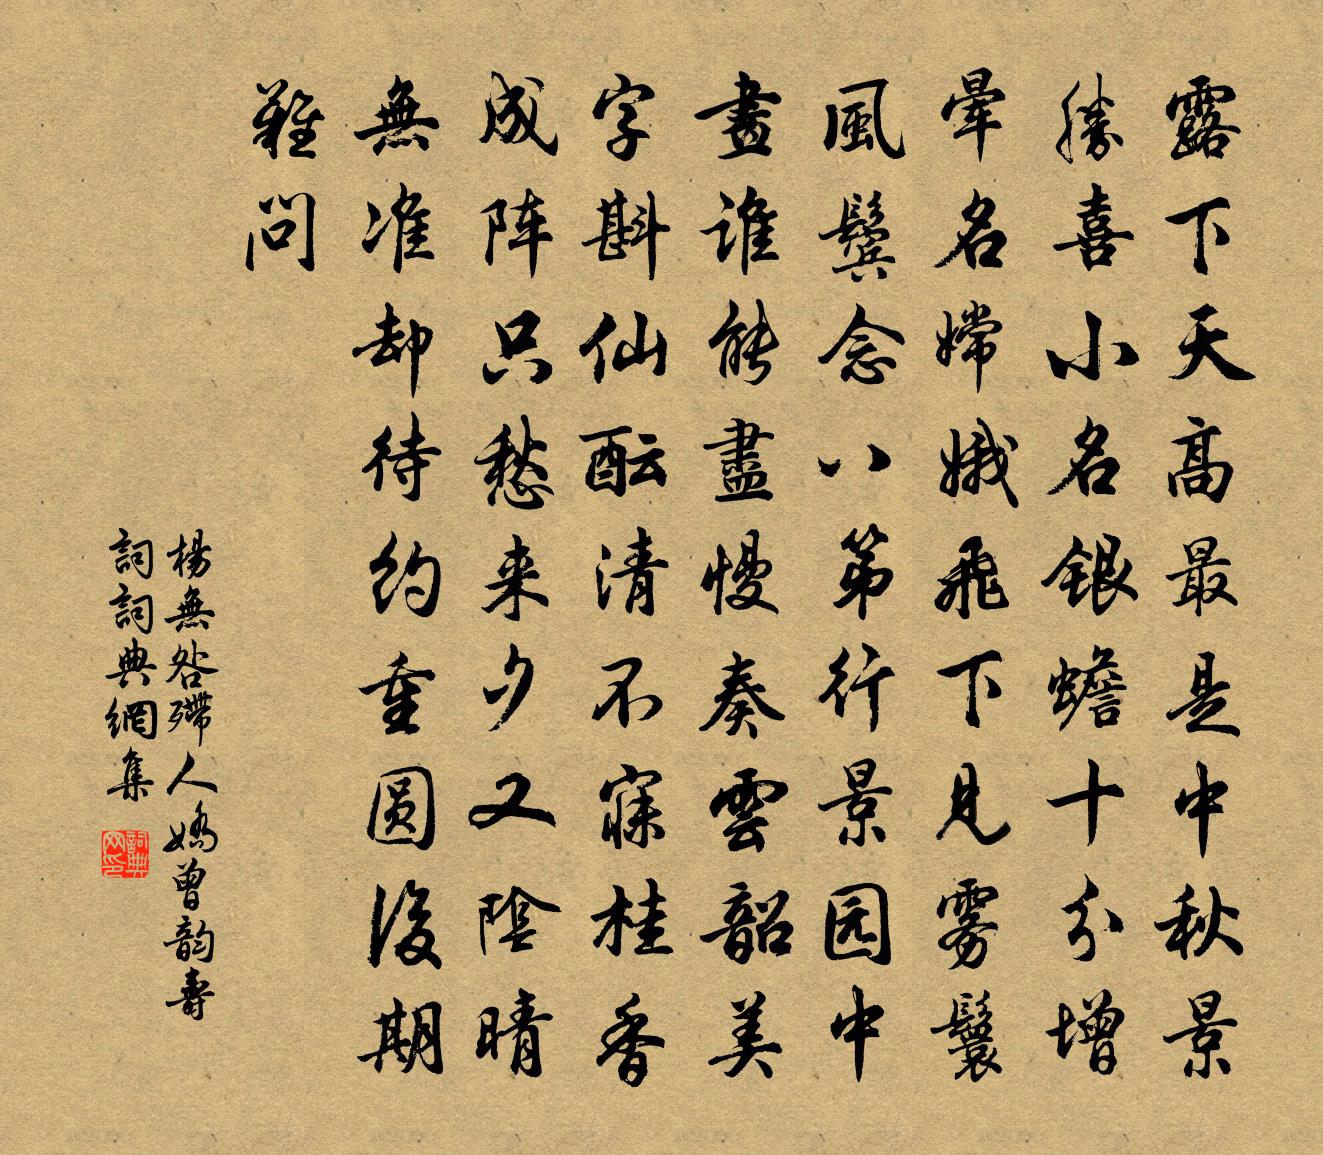 露下天高最是中秋景
勝喜小名銀蟾十分增
暈名嫦娥飛下見雾鬟
風鬓念八第行景园中
畫谁能盡慢奏雲韶美
字斟仙酝清不寐桂香
成阵只愁来夕又陰晴
無准却待约重圆後期
難问
楊無咎殢人嬌曾韵壽
詞詞典網集
詞典网印